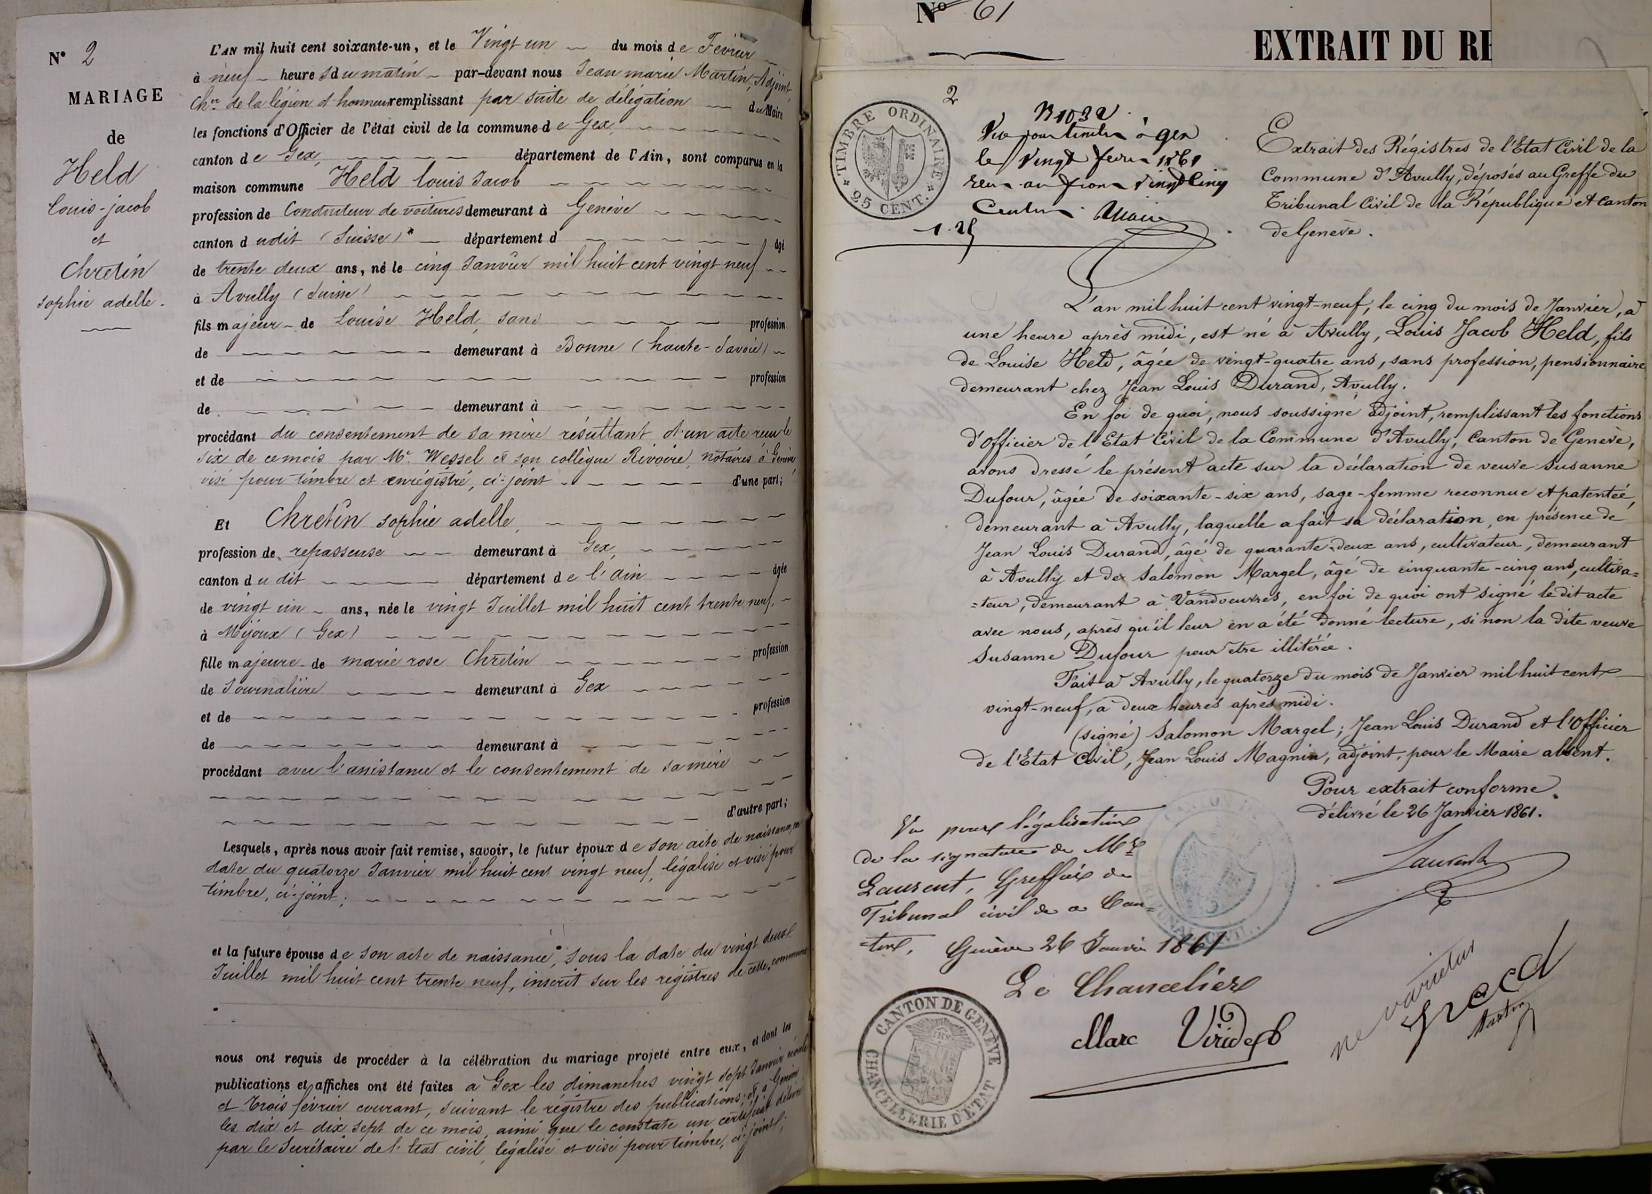 N° 2
MARIAGE
de
Held
Louis-jacob
et
Chretin
sophie adelle.
L'AN mil huit cent soixante-un, et le Vingt un du mois de Fevrier
à neuf heures du matin par-devant nous Jean marie Martin, Adjoint,
Chr de la légion d'honneur remplissant par suite de délégation du Maire
les fonctions d'Officier de l'état civil de la commune de Gex,
canton de Gex, département de l'Ain, sont comparus en la
maison commune Held louis Jacob
profession de Conducteur de voitures demeurant à Genève
canton dudit (Suisse)* département d âgé
de trente deux ans, né le cinq Janvier mil huit cent vingt neuf
à Avully (Suisse)
fils majeur de Louise Held, sans profession
de demeurant à Bonne (haute-Savoie)
et de profession
de demeurant à
procédant du consentement de sa mère résultant d'un acte reçu le
six de ce mois par Mr. Wessel et son collègue Rivoire, notaires à Genève
visé pour timbre et enrégistré, ci-joint d'une part;
Et Chretin sophie adelle,
profession de repasseuse demeurant à Gex,
canton dudit département de l'ain âgée
de vingt un ans, née le vingt Juillet mil huit cent trente neuf,
à Mijoux (Gex)
fille majeure de marie rose Chretin profession
de Journalière demeurant à Gex
et de profession
de demeurant à
procédant avec l'assistance et le consentement de sa mère
d'autre part;
Lesquels, après nous avoir fait remise, savoir, le futur époux de son acte de naissance, en
date du quatorze Janvier mil huit cent vingt neuf, légalisé et visé pour
timbre, ci-joint;
et la future épouse de son acte de naissance, sous la date du vingt deux
Juillet mil huit cent trente neuf, inscrit sur les registres de cette commune
nous ont requis de procéder à la célébration du mariage projeté entre eux, et dont les
publications et affiches ont été faites à Gex les dimanches vingt sept Janvier
et trois février courant, suivant le régistre des publications; et à Genève
les dix et dix sept de ce mois, ainsi que le constate un certificat délivré
par le Secrétaire de l'état civil, légalisé et visé pour timbre, ci-joint;
N° 61
EXTRAIT DU RE
2
TIMBRE ORDINAIRE
25 CENT.
N 1032
Visé pour timbre à Gex
le vingt 1861
reçu un franc vingt cinq
1.25
Extrait des Régistres de l'Etat Civil de la
Commune d'Avully, déposés au Greffe du
Tribunal Civil de la République et Canton
de Genève.
L'an mil huit cent vingt-neuf, le cinq du mois de Janvier, à
une heure après midi, est né à Avully, Louis Jacob Held, fils
de Louise Held, âgée de vingt-quatre ans, sans profession, pensionnaire,
demeurant chez Jean Louis Durand, Avully.
En foi de quoi, nous soussigné adjoint, remplissant les fonctions
d'Officier de l'Etat Civil de la Commune d'Avully, Canton de Genève,
avons dressé le présent acte sur la déclaration de veuve Susanne
Dufour, âgée de soixante-six ans, sage-femme reconnue et patentée,
demeurant à Avully, laquelle a fait sa déclaration, en présence de
Jean Louis Durand, âgé de quarante-deux ans, cultivateur, demeurant
à Avully et de Salomon Margel, âgé de cinquante-cinq ans, cultiva=
=teur, demeurant à Vandoeuvres, en foi de quoi ont signé le dit acte
avec nous, après qu'il leur en a été donné lecture, si non la dite veuve
Susanne Dufour pour être illitérée.
Fait à Avully, le quatorze du mois de Janvier mil huit cent
vingt-neuf, à deux heures après midi.
(signé) Salomon Margel; Jean Louis Durand et l'Officier
de l'Etat Civil, Jean Louis Magnin, adjoint, pour le Maire absent.
Pour extrait conforme.
délivré le 26 Janvier 1861.
Laurent
Vu pour légalisation
de la signature de Mr
Laurent, Greffier du
Tribunal civil de ce Can=
=ton, Genève 26 Janvier 1861
Le Chancelier
Marc Viridet
CANTON DE GENÈVE
CHANCELLERIE D'ETAT
ne varietur
Held
Martin